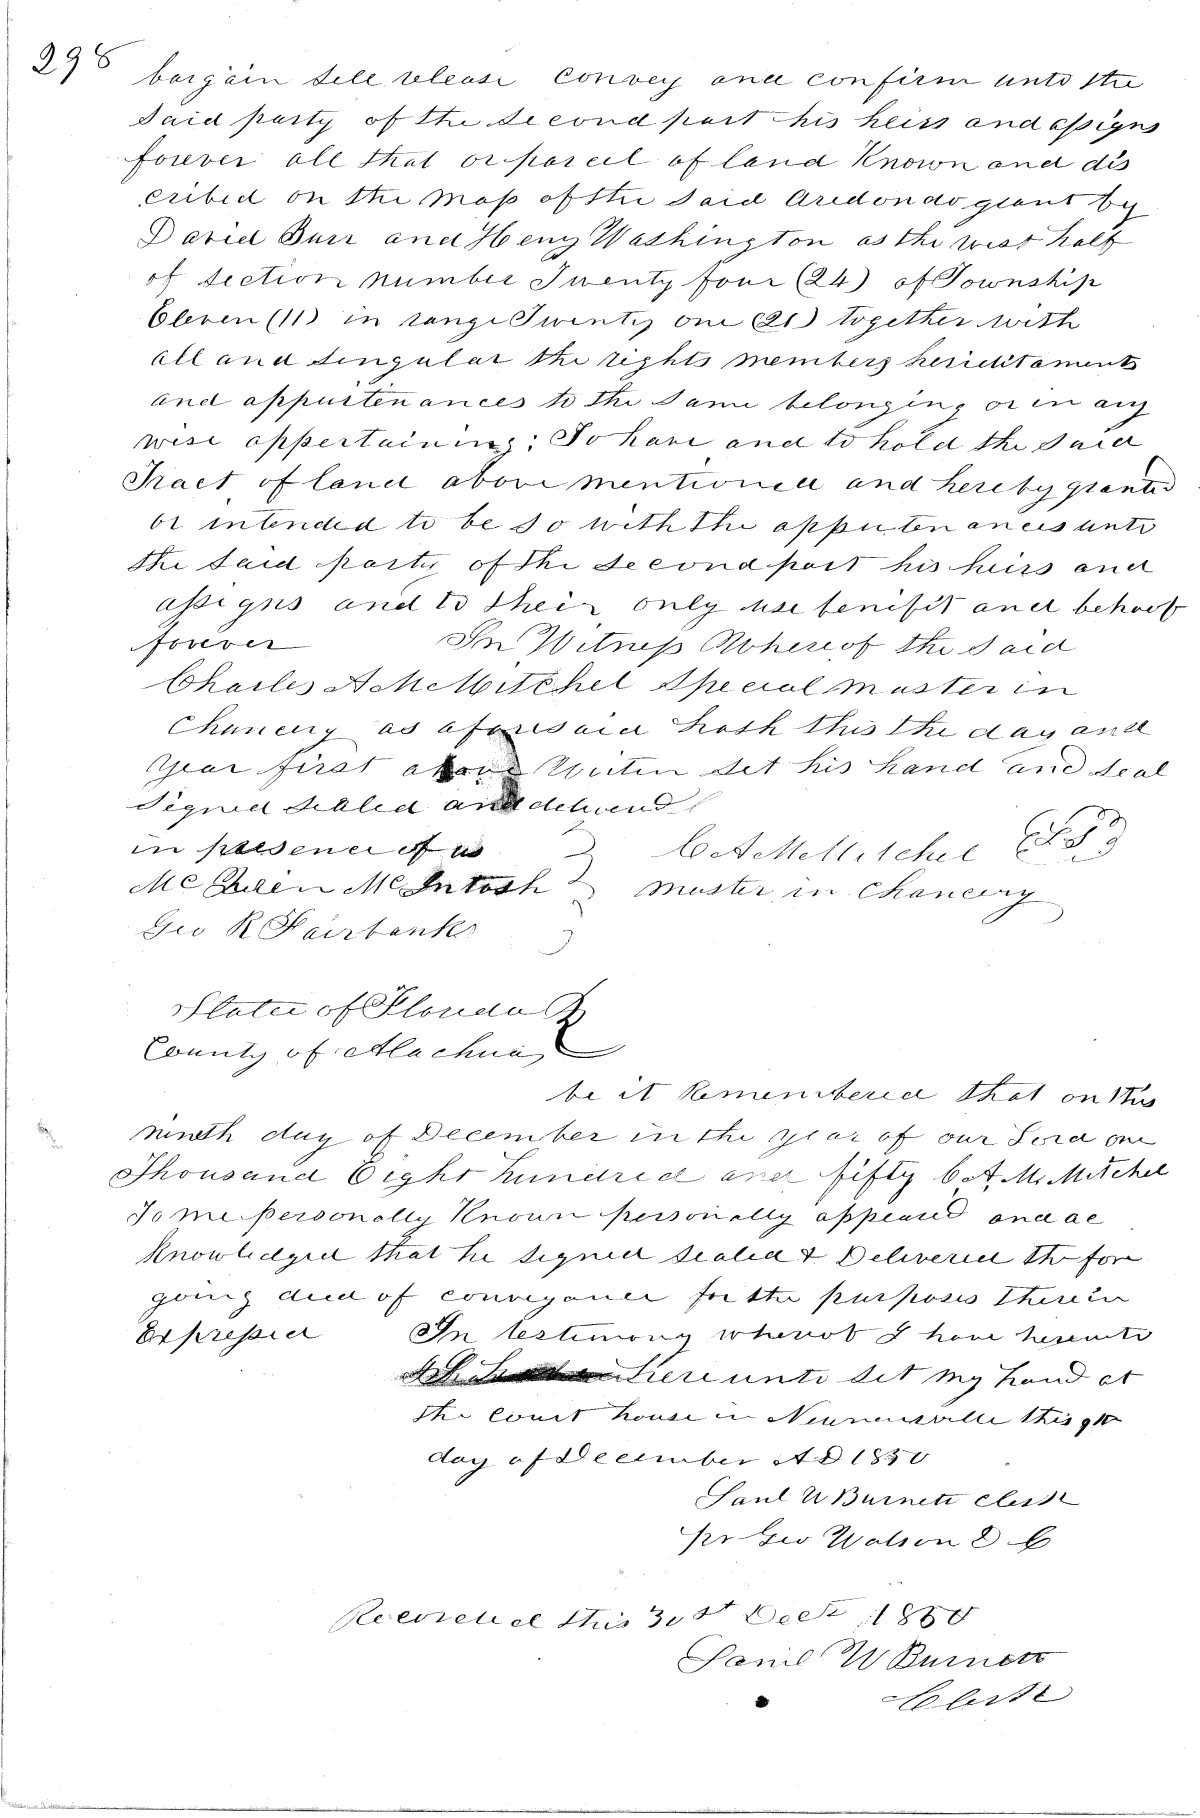 298
bargain sell release convey and confirm unto the
said party of the second part his heirs and assigns
forever all that or parcel of land Known and dis
cribed on the Map of the said Aredondo grant by
David Burr and Heny Washington as the west half
of section number Twenty four (24) of Township
Eleven (11) in range Twenty one (21) together with
all and singular the rights members heriditaments
and appurtenances to the same belonging or in any
wise appertaining; To have and to hold the said
Tract of land above mentioned and hereby granted
or intended to be so with the appurtenances unto
the said party of the second part his heirs and
assigns and to their only use benifit and behoof
forever In Witness Whereof the said
Charles A McMitchel Special Master in
Chancery as aforesaid hath this the day and
Year first above Writen set his hand and seal
Signed sealed and delivend
in presence of us C A McMitchel LS
McQueen McIntosh Master in Chancery
Geo R Fairbanks
State of Florida
County of Alachua
be it Remembered that on this
nineth day of December in the year of our Lord one
Thousand Eight hundred and fifty C A McMitchel
To me personally Known personally appeared and ac
knowledged that he signed sealed & Delivered the fore
going deed of conveyance for the purposes therein
Expressed In testimony whereof I have hereunto
hereunto set my hand at
the court house in Newnansville this 9th
day of December AD 1850
Saml W Burnett clerk
pr Geo Watson D C
Recorded this 30st Decr 1850
Saml W Burnett
Clerk